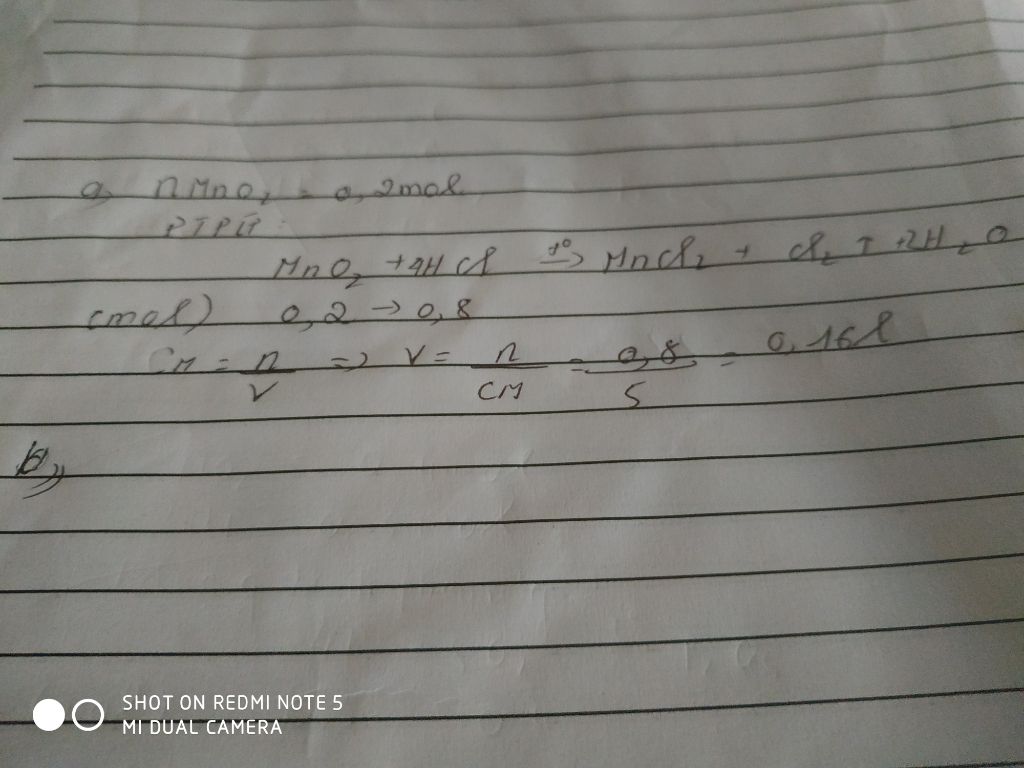 a, nMnO₂ = 0,2mol
PTPƯ:
MnO₂ + 4HCl t°=> MnCl₂ + Cl₂ ↑ + 2H₂O
(mol) 0,2 → 0,8
CM = n/V => V = n/CM = 0,8/5 = 0,16l
b,
SHOT ON REDMI NOTE 5
MI DUAL CAMERA